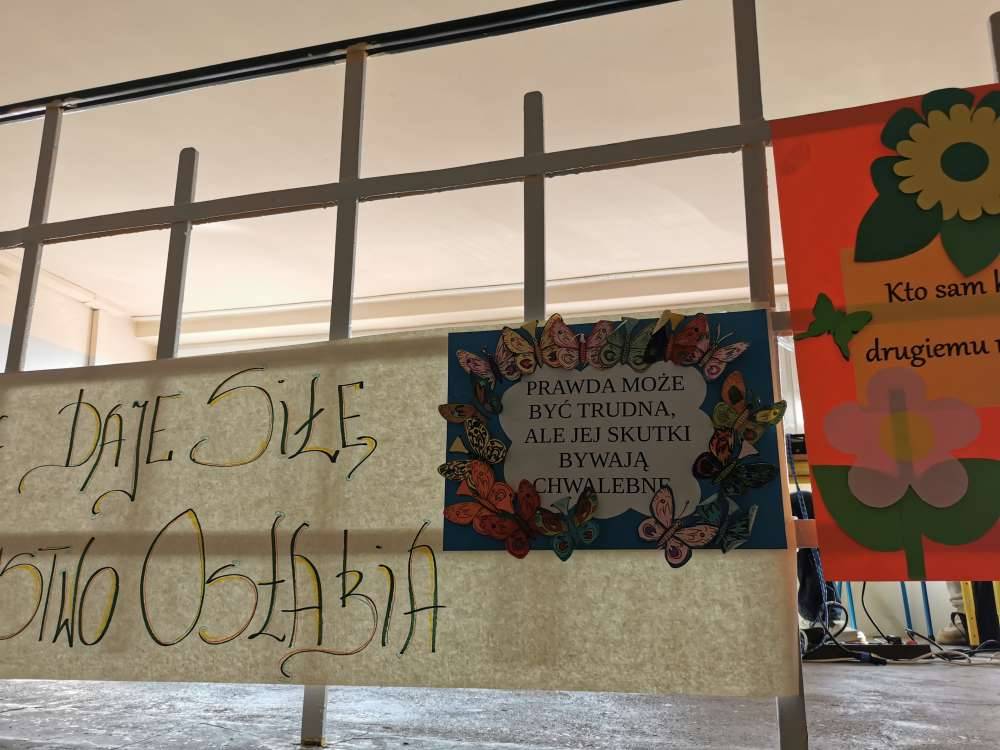 DAJE SIŁĘ
STWO OSŁABIA
PRAWDA MOŻE
BYĆ TRUDNA,
ALE JEJ SKUTKI
BYWAJĄ
CHWALEBNE
Kto sam k
drugiemu